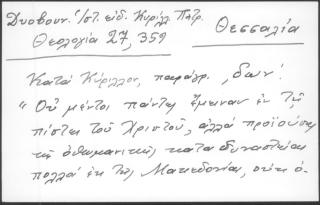 Δυοβουν. Ἱστ. εἰδ. Κυρίλλ. Πατρ.
Θεολογία 27, 359
Θεσσαλία
Κατὰ Κύριλλον, παράγρ. , δων!
"Οὐ μέντοι πάντες ἔμειναν ἐν τῇ
πίστει τοῦ Χριστοῦ, ἀλλὰ προϊούσης
τῆς ὀθωμανικῆς καταδυναστείας
πολλοὶ ἐκ τῆς Μακεδονίας, οὔτε ὀ-